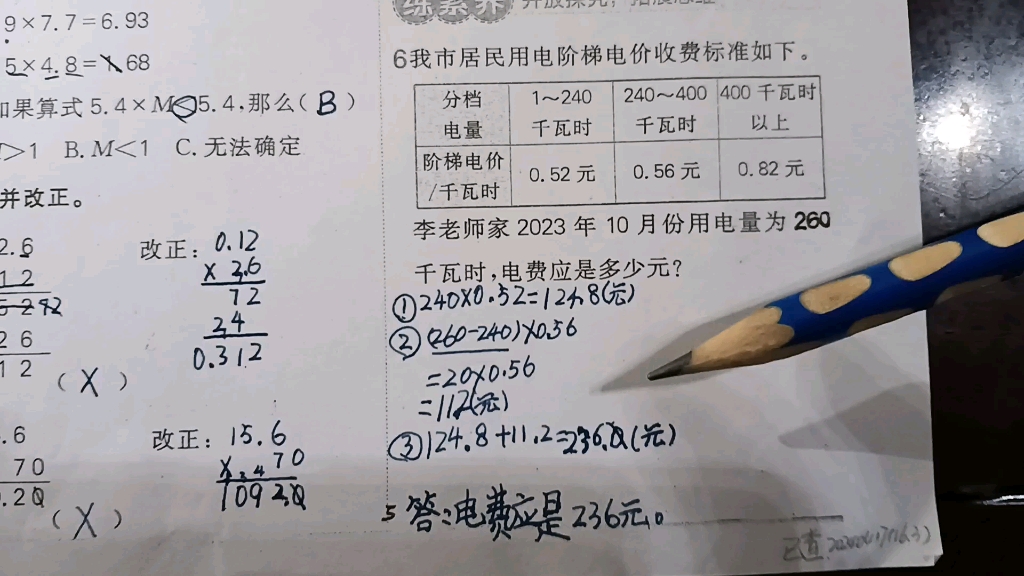 9×7.7=6.93
5×4.8=1.68
如果算式5.4×M<5.4,那么(B)
>1 B.M<1 C.无法确定
并改正。
2.6
12
5 2 72
26
12
(X)
改正:0.12
×2.6
72
24
0.312
.6
70
.20
(X)
改正:15.6
×70
1092.0
练素养
开放探究,拓展思维
6我市居民用电阶梯电价收费标准如下。
分档电量 1~240千瓦时 240~400千瓦时 400千瓦时以上
阶梯电价/千瓦时 0.52元 0.56元 0.82元
李老师家2023年10月份用电量为260
千瓦时,电费应是多少元?
①240×0.52=124.8(元)
②(260-240)×0.56
=20×0.56
=112(元)
③124.8+11.2=236.0(元)
5答:电费应是236元。